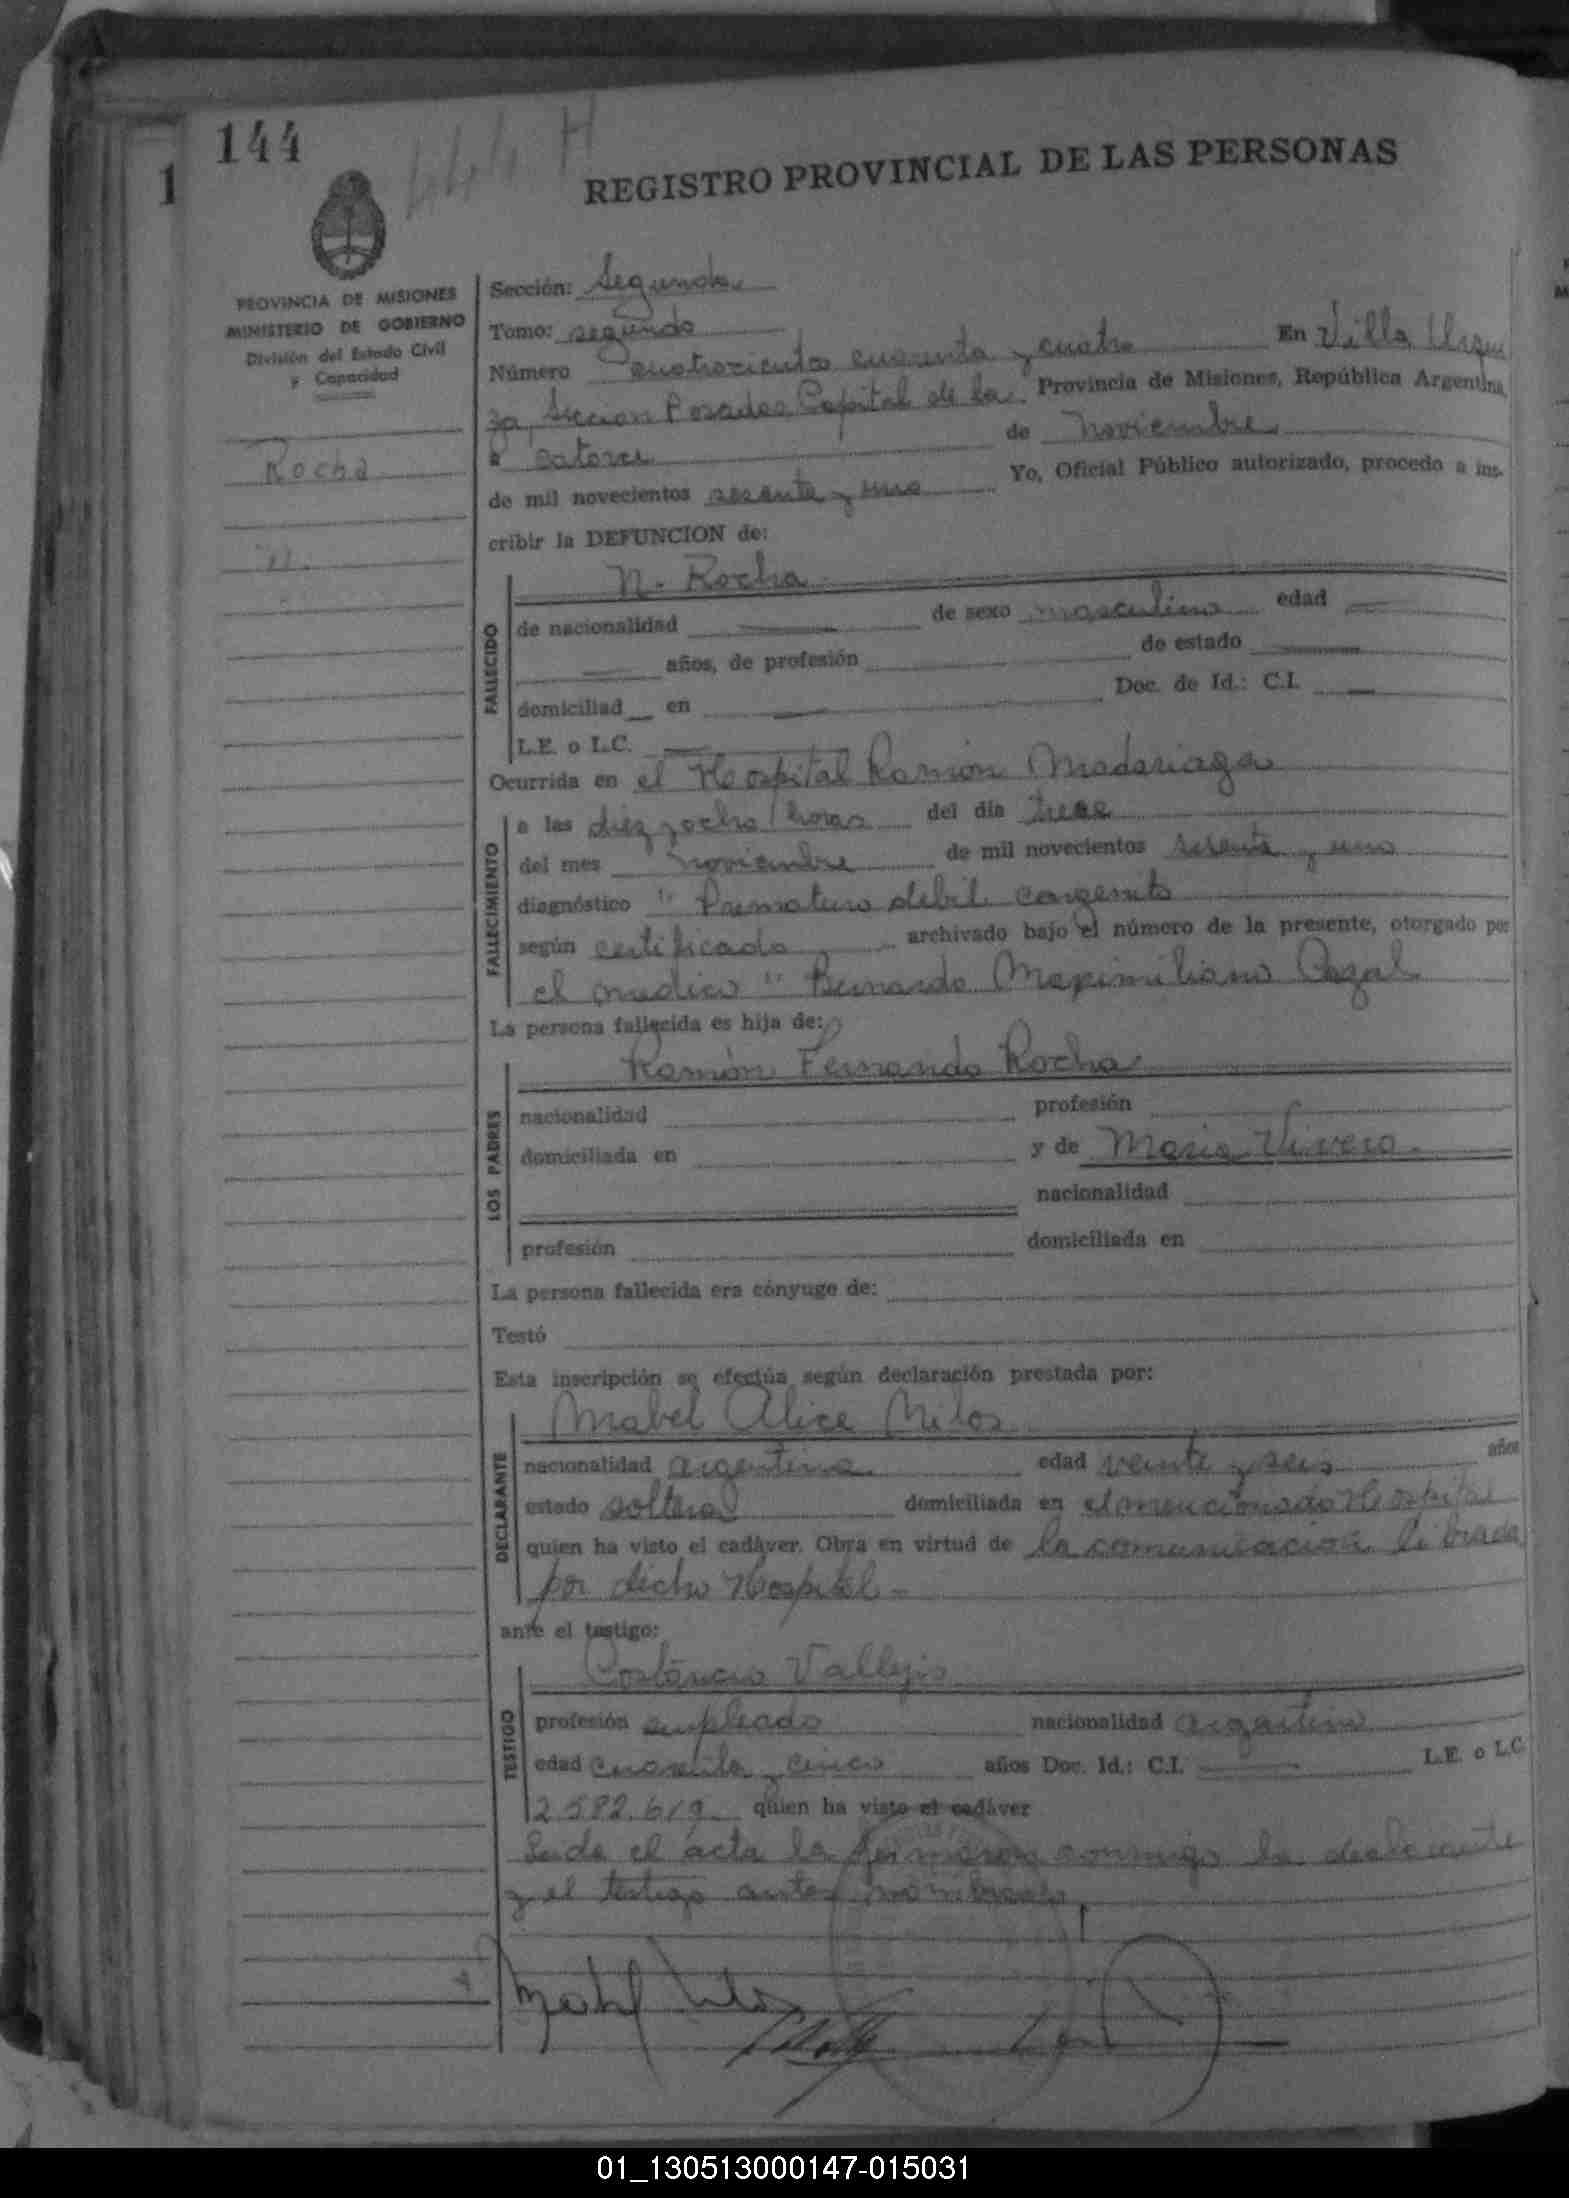 144
444 H
1
REGISTRO PROVINCIAL DE LAS PERSONAS
PROVINCIA DE MISIONES
MINISTERIO DE GOBIERNO
División del Estado Civil
y Capacidad
Rocha
N.
Sección: Segunda
Tomo: segundo
Número cuatrocientos cuarenta y cuatro En Villa Urqui
za, Sección Posadas Capital de la Provincia de Misiones, República Argentina,
a catorce de noviembre
de mil novecientos sesenta y uno Yo, Oficial Público autorizado, procedo a ins-
cribir la DEFUNCION de:
FALLECIDO
N. Rocha
de nacionalidad — de sexo masculino edad —
— años, de profesión de estado —
domiciliad en — Doc. de Id.: C.I. —
L.E. o L.C. —
Ocurrida en el Hospital Ramón Madariaga
FALLECIMIENTO
a las diez y ocho horas del día trece
del mes noviembre de mil novecientos sesenta y uno
diagnóstico " Prematuro debil congenito
según certificado archivado bajo el número de la presente, otorgado por
el medico " Bernardo Maximiliano Cazal
La persona fallecida es hija de:
LOS PADRES
Ramón Fernando Rocha
nacionalidad profesión
domiciliada en y de Maria Vivero
nacionalidad
profesión domiciliada en
La persona fallecida era cónyuge de:
Testó
Esta inscripción se efectúa según declaración prestada por:
DECLARANTE
Mabel Alice Milos
nacionalidad argentina edad veinte y seis años
estado soltera domiciliada en el mencionado Hospital
quien ha visto el cadáver. Obra en virtud de la comunicacion librada
por dicho Hospital
ante el testigo:
TESTIGO
Costancio Vallejos
profesión empleado nacionalidad argentino
edad cuarenta y cinco años Doc. Id.: C.I. — L.E. o L.C.
2582.619 quien ha visto el cadáver
Leida el acta la firmaron conmigo la declarante
y el testigo antes nombrado
01_130513000147-015031